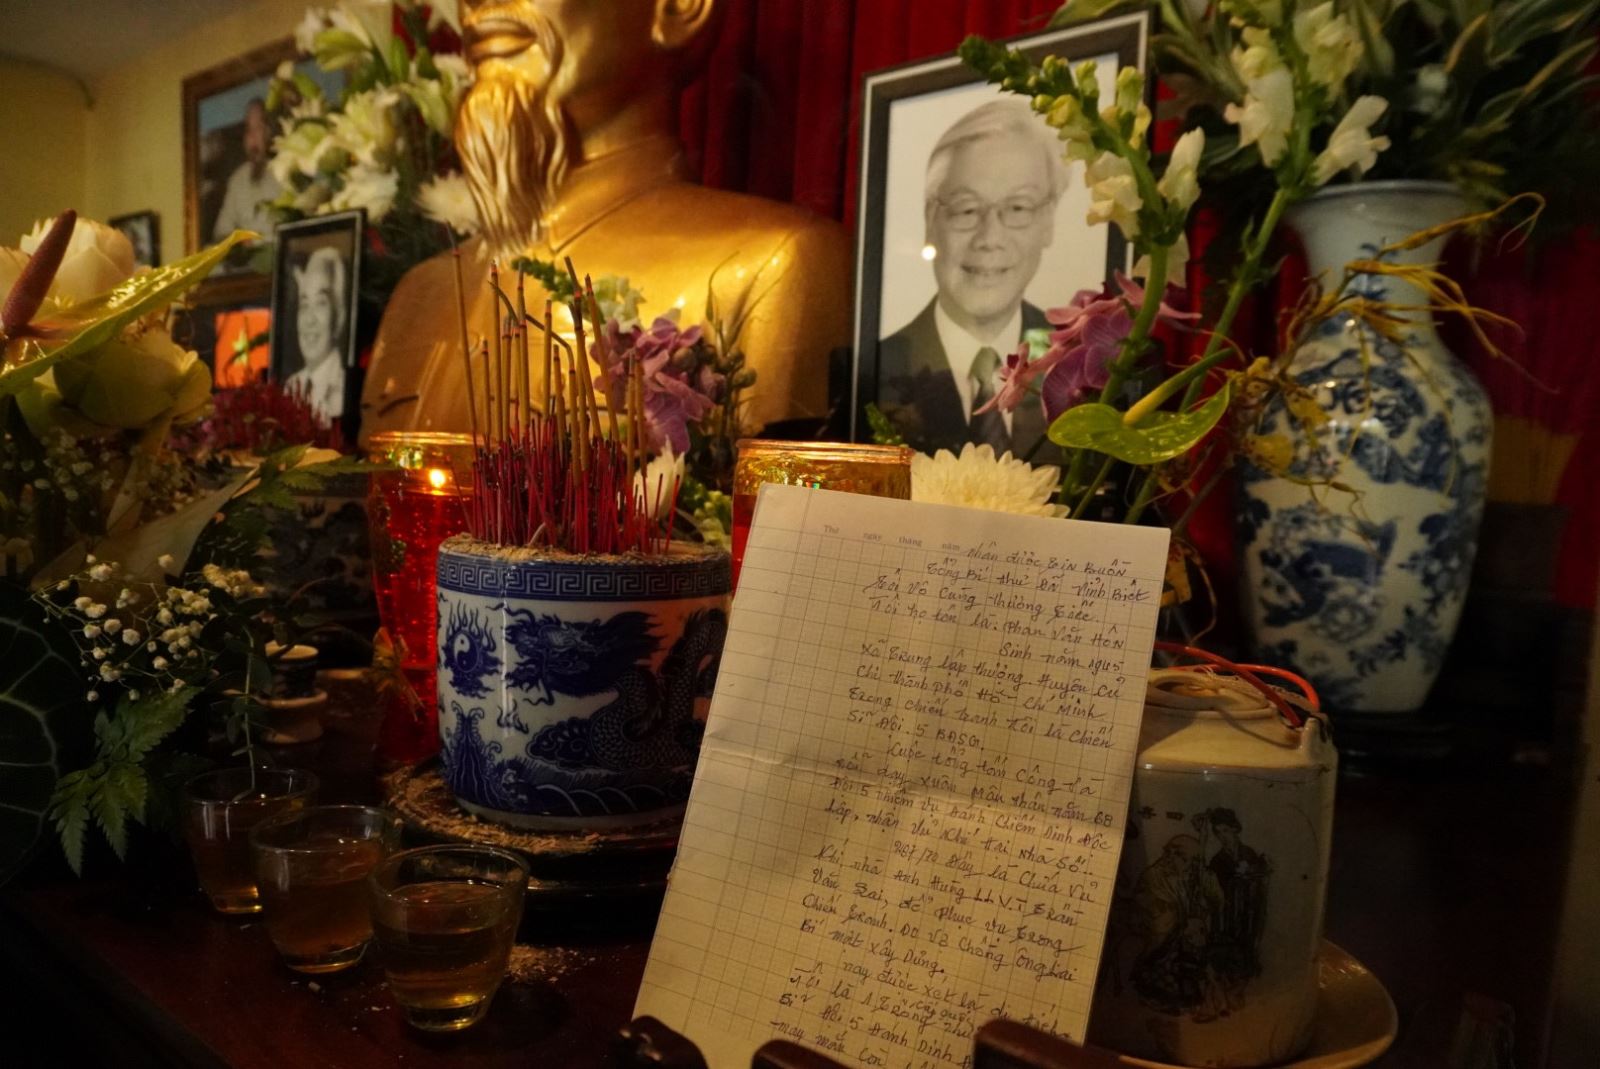 Thứ ngày tháng năm
Nhân được tin buồn
Tổng Bí thư Đã Vĩnh Biệt
Tôi vô cùng thương tiếc.
Tôi họ tên là: Phan Văn Hôn
Sinh năm
Xã Trung lập thượng Huyện Củ
Chi thành phố Hồ Chí Minh
Trong chiến tranh tôi là chiến
Sĩ Đội. 5 BĐSG.
Cuộc tổng tấn công và
nổi dạy xuân mậu thân năm 68
Đội 5 nhiệm vụ đánh chiếm Dinh Độc
lập, nhận vũ khí tại nhà số:
287/70 đây là chứa vũ
khí nhà Anh Hùng LLVT Trần
Văn Lai, để phục vụ trong
chiến tranh. Do vợ chồng ông Lai
Bí mật xây Dựng.
nay được xét là di tích
Tôi là 1 trong
Sĩ Đội 5 đánh Dinh
may mắn còn